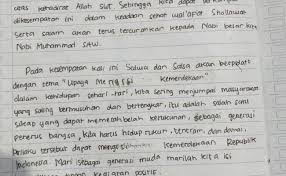 atas kehadirat Allah swt. Sehingga kita dapat
dikesempatan ini dalam keadaan sehat wal'afiat Sholawat
Serta salam akan terus tercurahkan kepada Nabi besar kita
Nabi Muhammad SAW.
Pada kesempatan kali ini Saluia dan Salsa akan berpidato
dengan tema "Upaya Mengisi Kemerdekaan"
dalam kehidupan sehari-hari, kita sering menjumpai masyarakat
yang saling bermusuhan dan bertengkar, itu adalah salah satu
sikap yang dapat memecahbelah kerukunan, sebagai generasi
penerus bangsa, kita harus hidup rukun, tentram, dan damai,
perilaku tersebut dapat Kemerdekaan Republik
Indonesia. Mari sebagai generasi muda marilah kita isi
kegiatan positif.